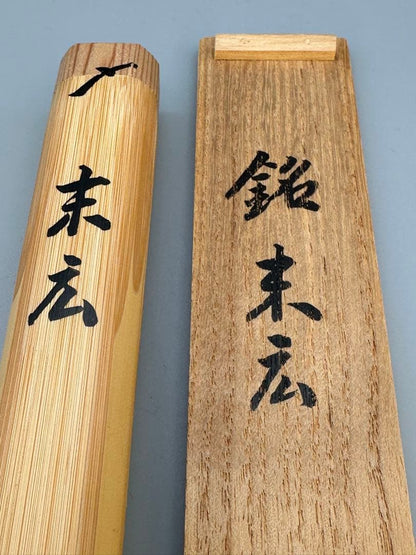 銘 末広
末広